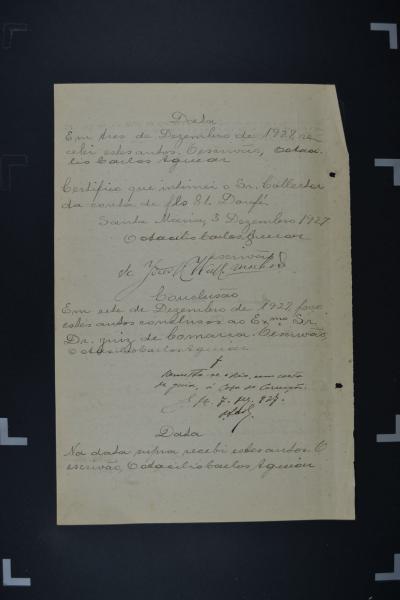 Data
Em tres de Dezembro de 1927 re
cebi estes autos. O escrivão, Octaci-
lio Carlos Aguiar
Certifico que intimei o Sr. Collector
da conta de fls 51. Doufé.
Santa Maria, 3 Dezembro 1927
Octacilio Carlos Aguiar
escrivão
Conclusão
Em sete de Dezembro de 1927, faço
estes autos conclusos ao Exmo Sr.
Dr. juiz de Comarca. O escrivão,
Octacilio Carlos Aguiar
Remetta-se o Réo, com carta
de guia, á Casa de Correcção.
S. M. 7. Dez. 927.
Data
Na data supra recebi estes autos. O
escrivão, Octacilio Carlos Aguiar